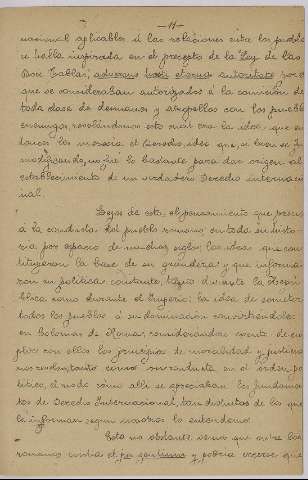 - 11 -
nacional aplicables á las relaciones entre los pueblos
se halla inspirada en el precepto de la Ley de las
Doce Tablas, adversus hostes eterna autoritate por el
que se consideraban autorizados á la comisión de
toda clase de desmanes y atropellos con los pueblos
enemigos, revelándonos esto cual era la idea que en-
tonces les merecía el Derecho, idea que, si bien se fue
modificando, no fue lo bastante para dar origen al
establecimiento de un verdadero Derecho internacio-
nal.
Lejos de esto, el pensamiento que presidió
á la conducta del pueblo romano en toda su histo-
ria por espacio de muchos siglos, las ideas que cons-
tituyeron la base de su grandeza y que informa-
ron su política constante, tanto durante la Repú-
blica como durante el Imperio: la idea de someter
todos los pueblos á su dominación convirtiéndolos
en Colonias de Roma, considerándose exento de em-
plear con ellos los principios de moralidad y justicia
nos demuestra cómo
en el orden po-
lítico, el modo como allí se apreciaban los fundamen-
tos de Derecho Internacional, tan distintos de los que
le informan según nosotros lo entendemos.
Esto no obstante, vemos que entre los
romanos existía el jus gentium y podría creerse que